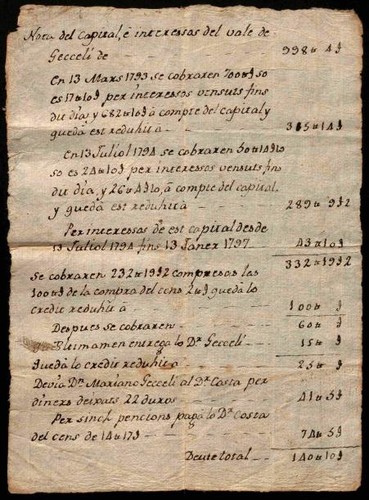 Nota del Capital, è interessos del vale de
Gecceli de - 998 ɑ 4 ʃ
En 13 Mars 1793 se cobraren 700 ɑ ʃ so
es 17 ɑ 10 ʃ per interessos vensuts fins
dit dia, y 682 ɑ 10 ʃ à compte del capital y
quedà est reduhit a - 315 ɑ 14 ʃ
En 13 Juliol 1794 se cobraren 50 ɑ 14 ʃ 10
so es 24 ɑ 10 ʃ per interessos vensuts fins
dit dia, y 26 ɑ 4 ʃ 10, à compte del capital.
y quedà est reduhit à - 289 ɑ 9 ʃ 2
Per interessos de est capital desde
13 Juliol 1794 fins 13 Janer 1797. - 43 ɑ 10 ʃ
332 ɑ 19 ʃ 2
Se cobraren 232 ɑ 19 ʃ 2 compresas las
100 ɑ ʃ de la compra del cens 2 ɑ ʃ quedà lo
credit reduhit à - 100 ɑ ʃ
Despues se cobraren - 60 ɑ ʃ
Ultimament entregà lo Dr. Gecceli - 15 ɑ ʃ
Quedà lo credit reduhit a - 25 ɑ ʃ
Devia Dn. Mariano Gecceli al Dr. Costa per
diners deixats 22 duros - 41 ɑ 5 ʃ
Per sinch pencions pagà lo Dr. Costa
del cens de 14 ɑ 17 ʃ - 74 ɑ 5 ʃ
Deute total - 140 ɑ 10 ʃ